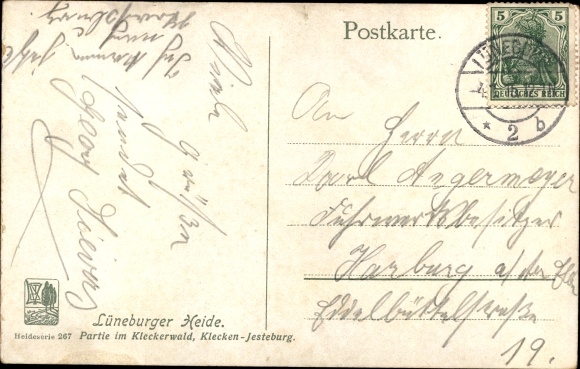 Postkarte.
5 5
DEUTSCHES REICH
LÜNEBURG
* 2 b
Viele
Grüße
sendet
Georg
An
Herrn
Karl Angermeyer
Fuhrwerksbesitzer
Harburg a/der Elbe
Eddelbüttelstraße
19.
Lüneburger Heide.
Heideserie 267 Partie im Kleckerwald, Klecken-Jesteburg.